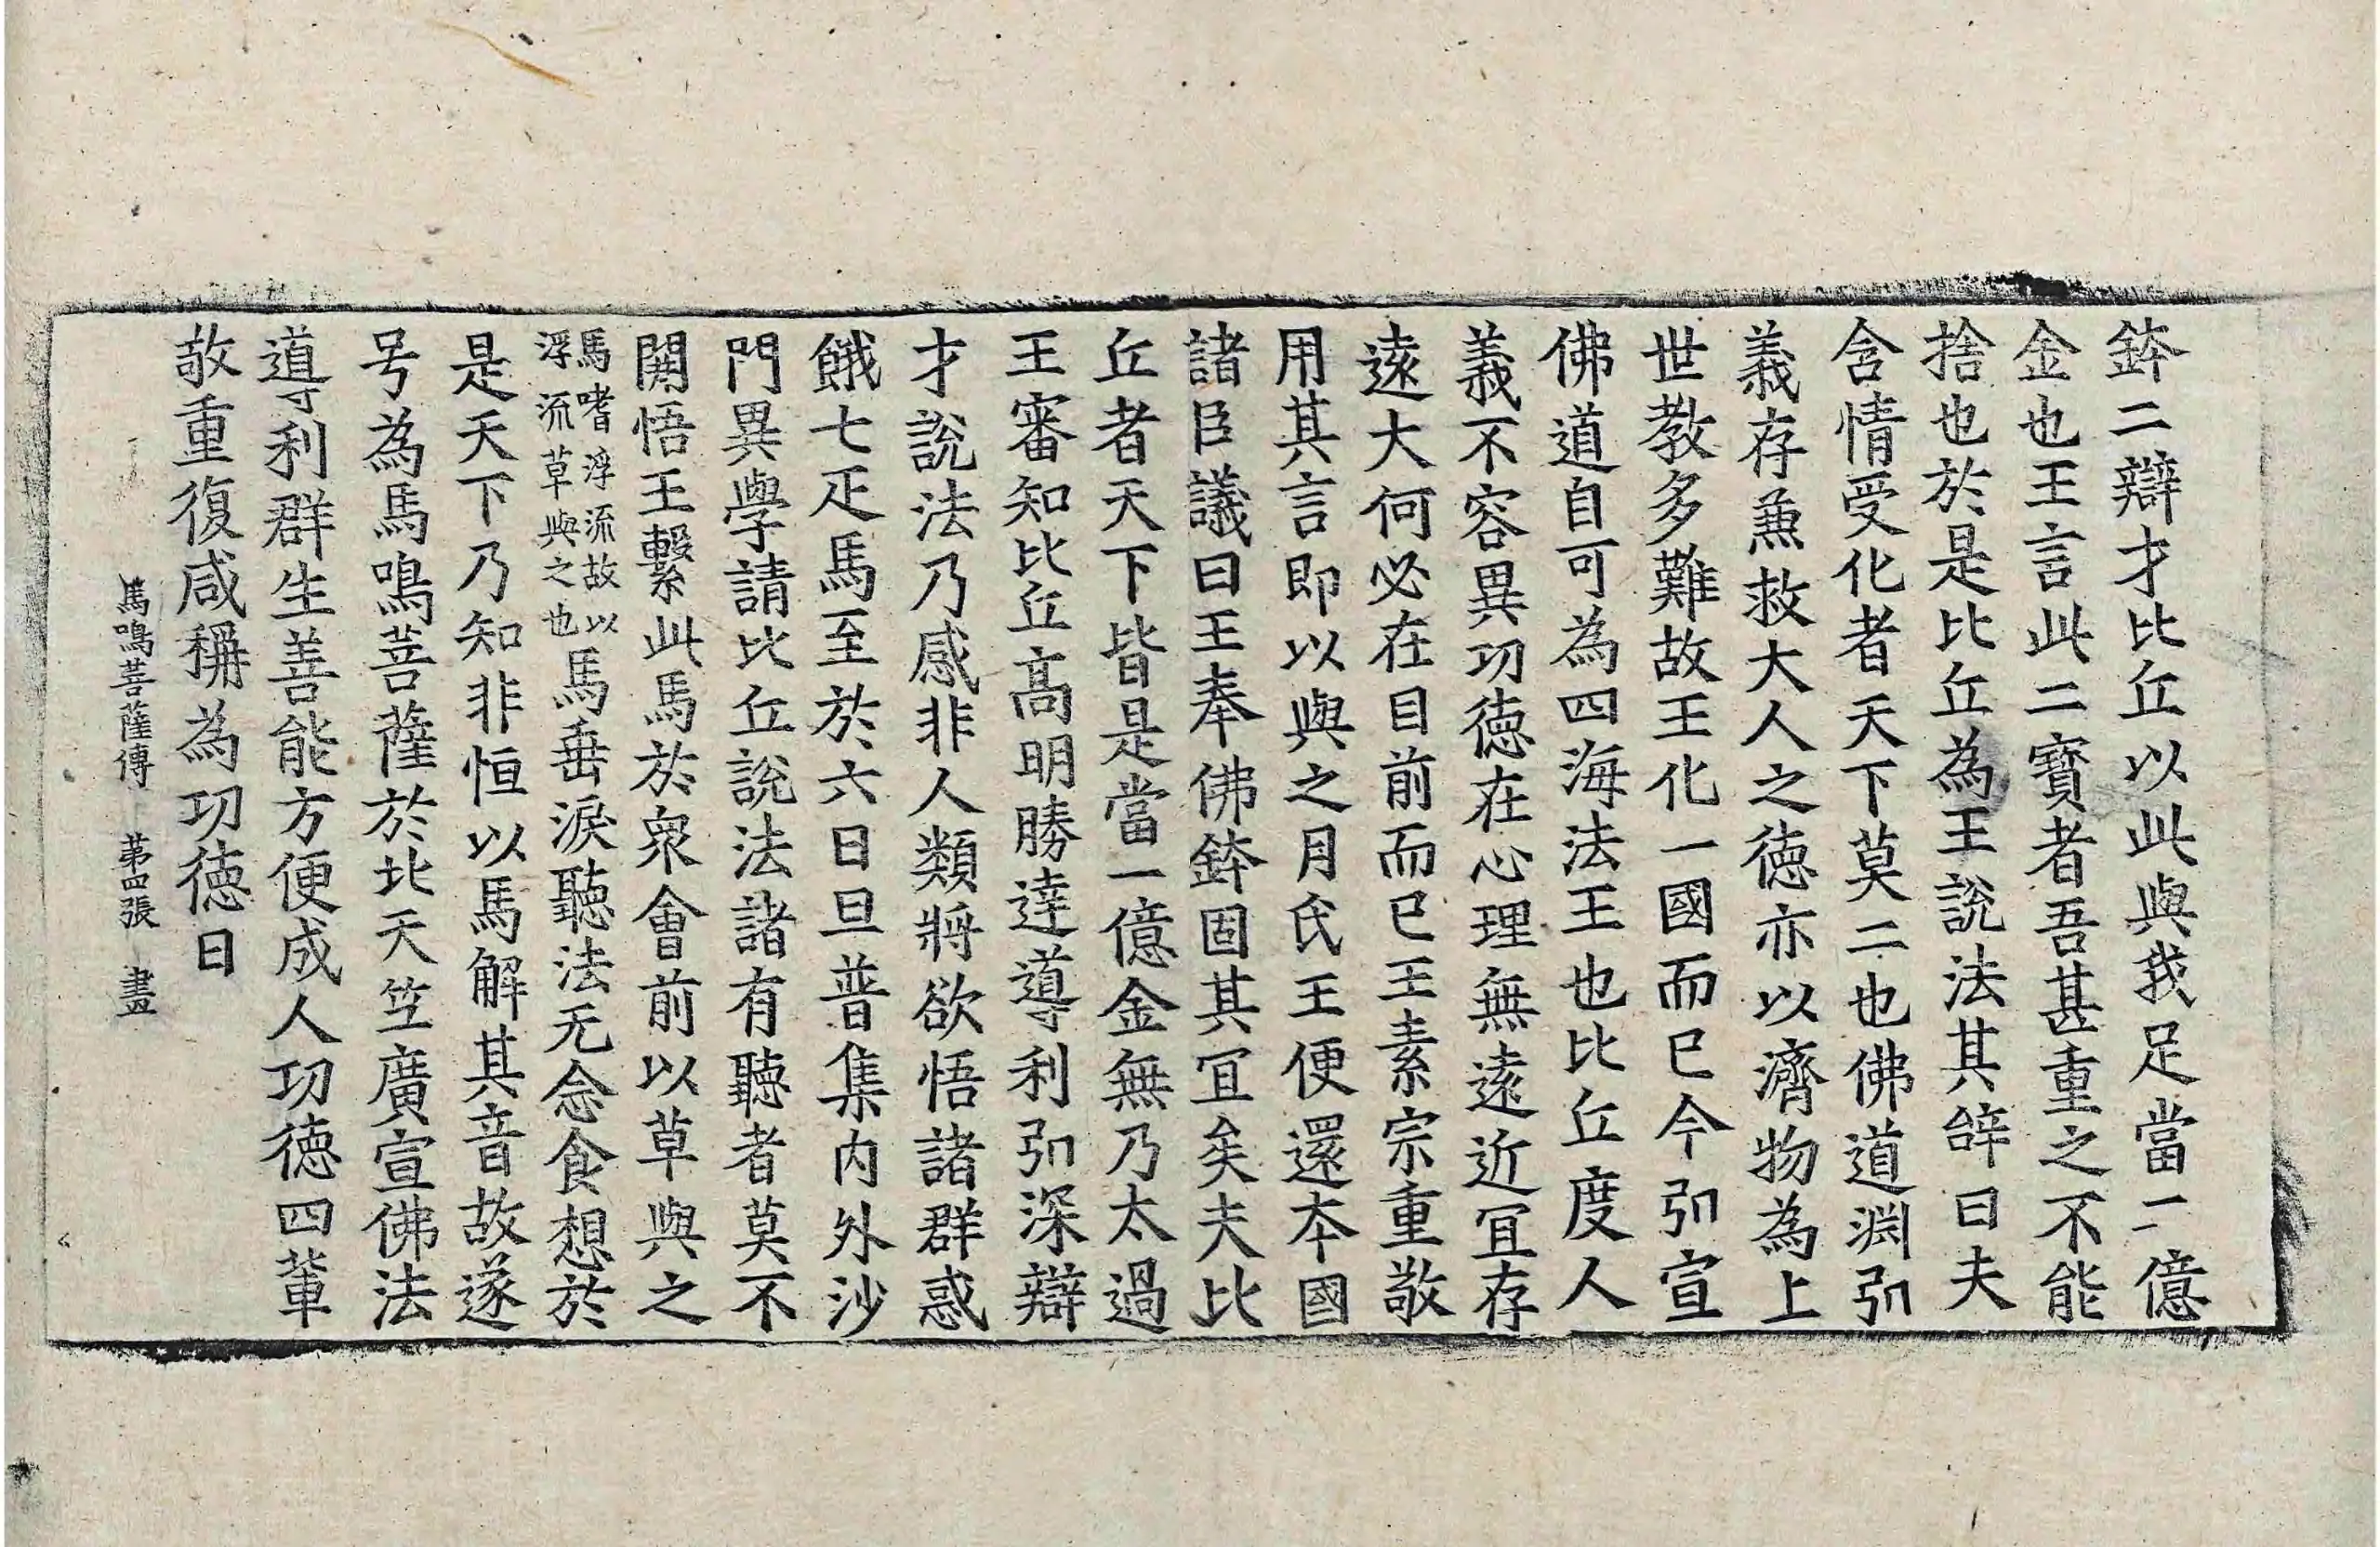 鉢二辯才比丘以此與我足當一億
金也王言此二寶者吾甚重之不能
捨也於是比丘為王説法其辝曰夫
含情受化者天下莫二也佛道渊弘
義存兼救大人之德亦以濟物為上
世教多難故王化一國而已今弘宣
佛道自可為四海法王也比丘度人
義不容異功德在心理無遠近宜存
遠大何必在目前而已王素宗重敬
用其言即以與之月氏王便還本國
諸臣議曰王奉佛鉢固其冝矣夫比
丘者天下皆是當一億金無乃太過
王審知比丘高明勝達導利弘深辯
才説法乃感非人類将欲悟諸群惑
餓七疋馬至於六日旦普集内外沙
門異學請比丘説法諸有聽者莫不
開悟王繫此馬於衆會前以草與之
馬嗜浮流故以
浮流草與之也
馬垂淚聽法无念食想於
是天下乃知非恒以馬解其音故遂
号為馬鳴菩薩於北天竺廣宣佛法
導利群生善能方便成人功德四輩
敬重復咸稱為功德日
馬鳴菩薩傳 第四張 畫